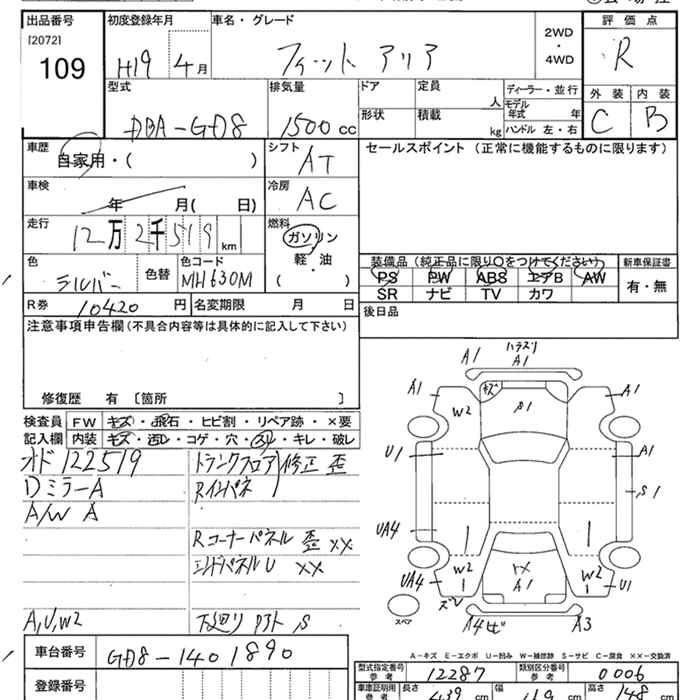 出品番号
[2072]
109
初度登録年月
H19 4月
車名・グレード
フィット アリア
2WD
・
4WD
評価点
R
外装 内装
C B
型式
DBA-GD8
排気量
1500 cc
ドア
定員
人
形状
積載
kg
ディーラー・並行
モデル年式 年
ハンドル 左・右
車歴
自家用・( )
シフト
AT
車検
年 月( 日)
冷房
AC
走行
12万2千519 km
燃料
ガソリン
軽・油
( )
色
シルバー
色替
色コード
NH630M
R券 10420 円
名変期限 月 日
セールスポイント (正常に機能するものに限ります)
装備品 (純正品に限り○をつけてください)
PS PW ABS エアB AW
SR ナビ TV カワ
新車保証書
有・無
後日品
注意事項申告欄(不具合内容等は具体的に記入して下さい)
修復歴 有 [箇所 ]
検査員記入欄
FW キズ・飛石・ヒビ割・リペア跡・×要
内装 キズ・汚レ・コゲ・穴・スレ・キレ・破レ
オド 122519
Dミラー A
A/W A
A,U,W2
トランクフロア 修正 歪
Rインパネ
Rコーナーパネル 歪 XX
エンドパネル U XX
下廻り S
ハラズリ
A1
A1
A1
キズ
A1
W2
S1
U1
A1
S1
UA4
UA4
W2
W2
U1
トメ
A1
スペア
A3
車台番号
GD8-1401890
登録番号
A-キズ E-エクボ U-凹み W-補修跡 S-サビ C-腐食 XX-交換済
型式指定番号
参考
12287
類別区分番号
参考
0006
車庫証明用
参考
長さ 439 cm
幅 169 cm
高さ 148 cm